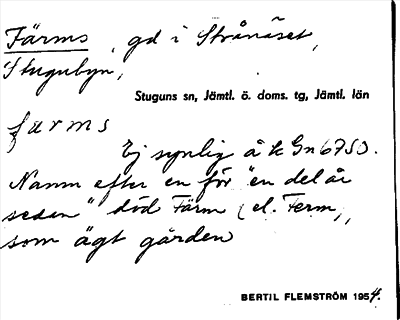 Färms, gd i Strånäset,
Stugubyn,
Stuguns sn, Jämtl. ö. doms. tg, Jämtl. län
färms
Ej synlig å k Gn 6750.
Namn efter en för "en del år
sedan" död Färm (el. Ferm),
som ägt gården
BERTIL FLEMSTRÖM 1954.